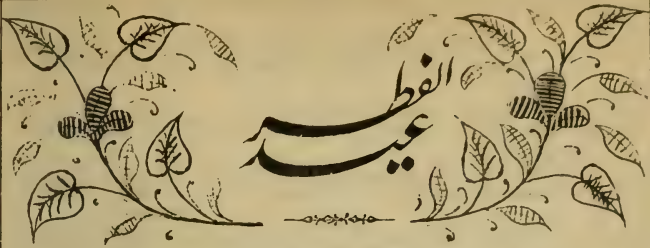 عيد الفطر